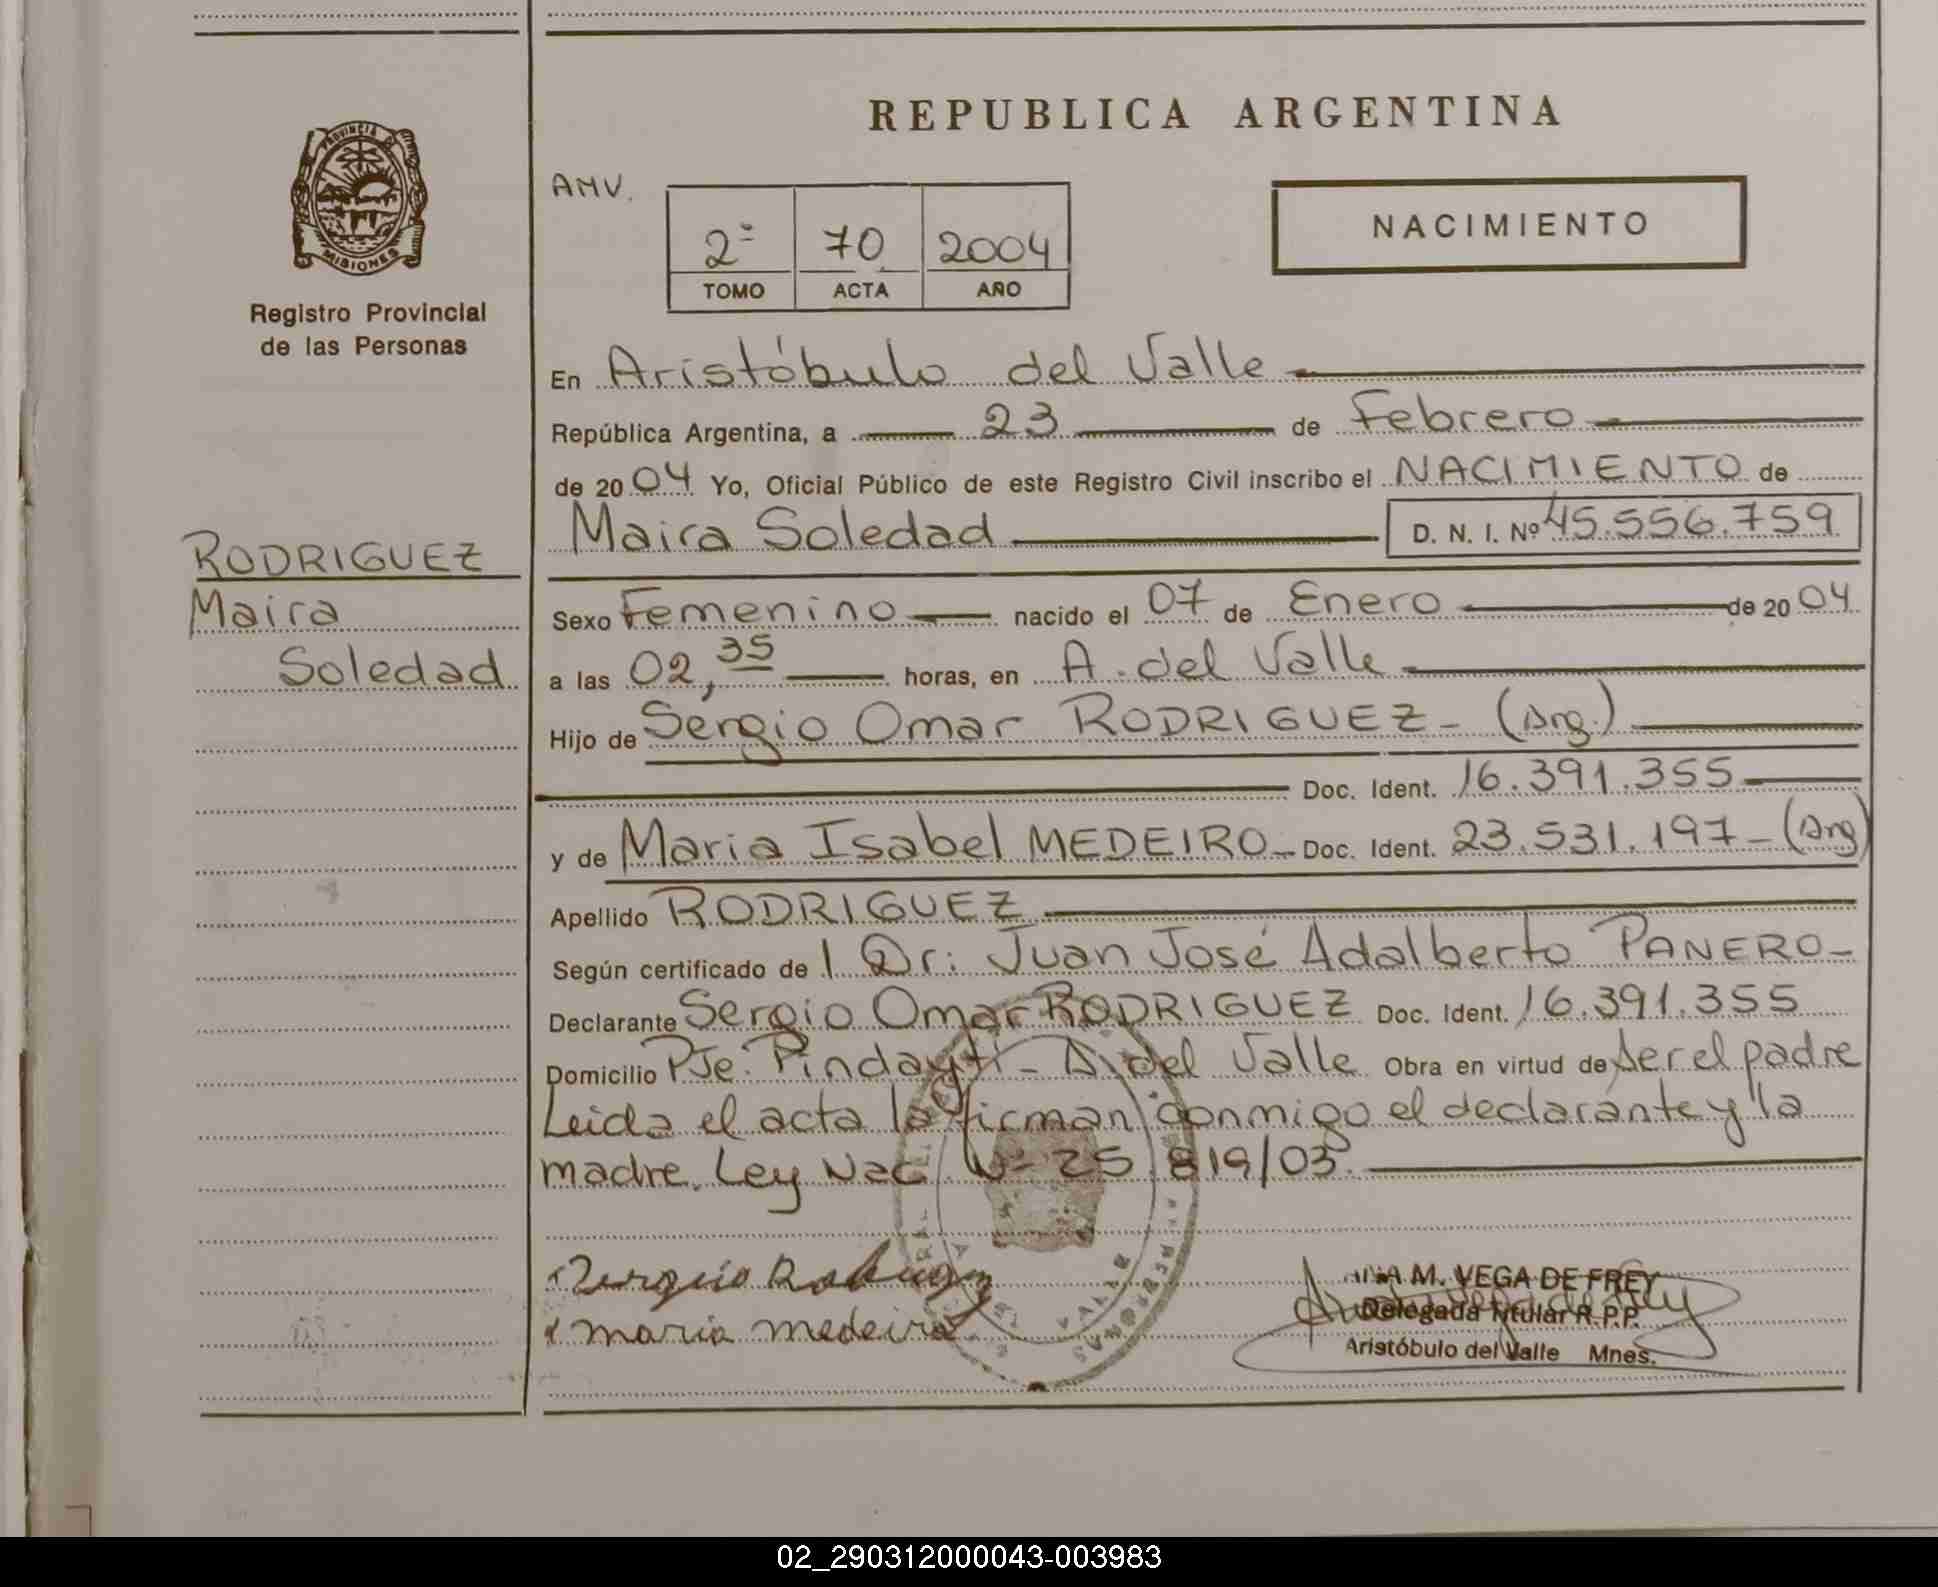 REPUBLICA ARGENTINA
PROVINCIA DE
MISIONES
Registro Provincial
de las Personas
AMV.
2º 70 2004
TOMO ACTA AÑO
NACIMIENTO
En Aristóbulo del Valle
República Argentina, a 23 de Febrero
de 2004 Yo, Oficial Público de este Registro Civil inscribo el NACIMIENTO de
Maira Soledad D. N. I. Nº 45.556.759
RODRIGUEZ
Maira
Soledad
Sexo Femenino nacido el 07 de Enero de 2004
a las 02,35 horas, en A. del Valle
Hijo de Sergio Omar RODRIGUEZ - (Arg.)
Doc. Ident. 16.391.355
y de Maria Isabel MEDEIRO - Doc. Ident. 23.531.197 - (Arg)
Apellido RODRIGUEZ
Según certificado de l Dr: Juan José Adalberto PANERO -
Declarante Sergio Omar RODRIGUEZ Doc. Ident. 16.391.355
Domicilio Pje. Pindayti - A. del Valle Obra en virtud de ser el padre
Leida el acta la firman conmigo el declarante y la
madre. Ley Nac. Nº 25.819/03.
Sergio
maria medeiro
M. VEGA DE FREY
Delegada Titular R.P.P.
Aristóbulo del Valle Mnes.
02_290312000043-003983